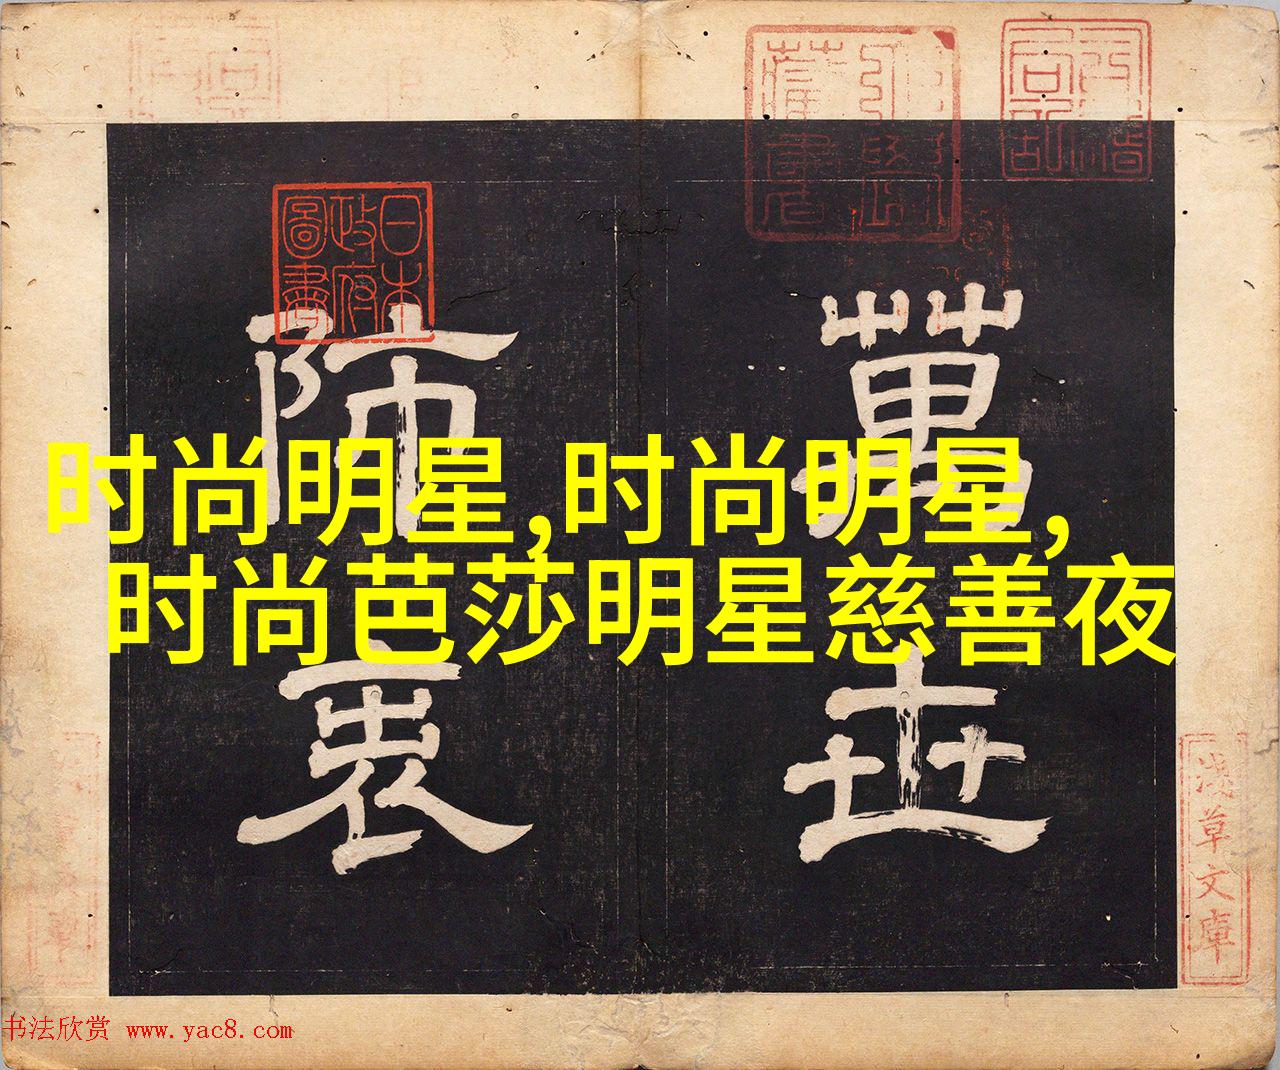 時尚明星,时尚明星,
时尚芭莎明星慈善夜
萬世
師表
日本
政府
圖書
淺草文庫
书法欣赏 www.yac8.com